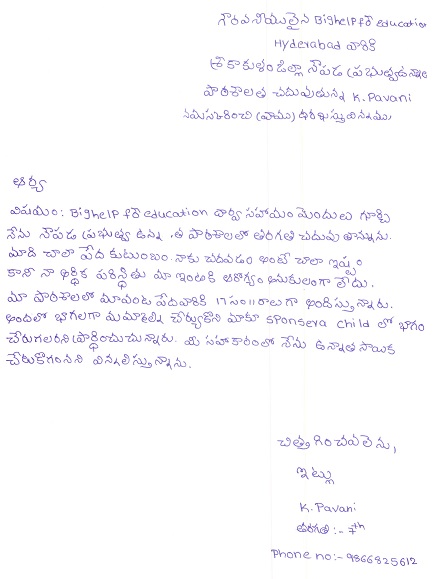 గౌరవనీయులైన Bighelp for education
Hyderabad వారికి
శ్రీకాకుళం జిల్లా నౌపడ ప్రభుత్వ ఉన్నత
పాఠశాలలో చదువుతున్న K. Pavani
నమస్కరించి వ్రాయు
ఆర్య
విషయం: Bighelp for education ద్వారా సహాయం పొందుట గూర్చి
నేను నౌపడ ప్రభుత్వ ఉన్నత పాఠశాలలో తరగతి చదువుతున్నాను.
మాది చాలా పేద కుటుంబం. నాకు చదవడం అంటే చాలా ఇష్టం
కానీ నా ఆర్థిక పరిస్థితు మా ఇంటికి అనుకులంగా లేదు.
మా పాఠశాలలో మావంటి పేదవారికి 17 సం॥రాలు గా అందిస్తున్నారు.
అందులో భాగంగా చేర్చుకొని మాకూ sponsera child లో భాగం
చేయగలరని ప్రార్థించుచున్నాను. ఈ సహకారంతో నేను ఉన్నత
చేరుకోగలనని విన్నవిస్తున్నాను.
చిత్తగించవలెను,
ఇట్లు
K. Pavani
తరగతి :- 7th
Phone no:- 9866825612